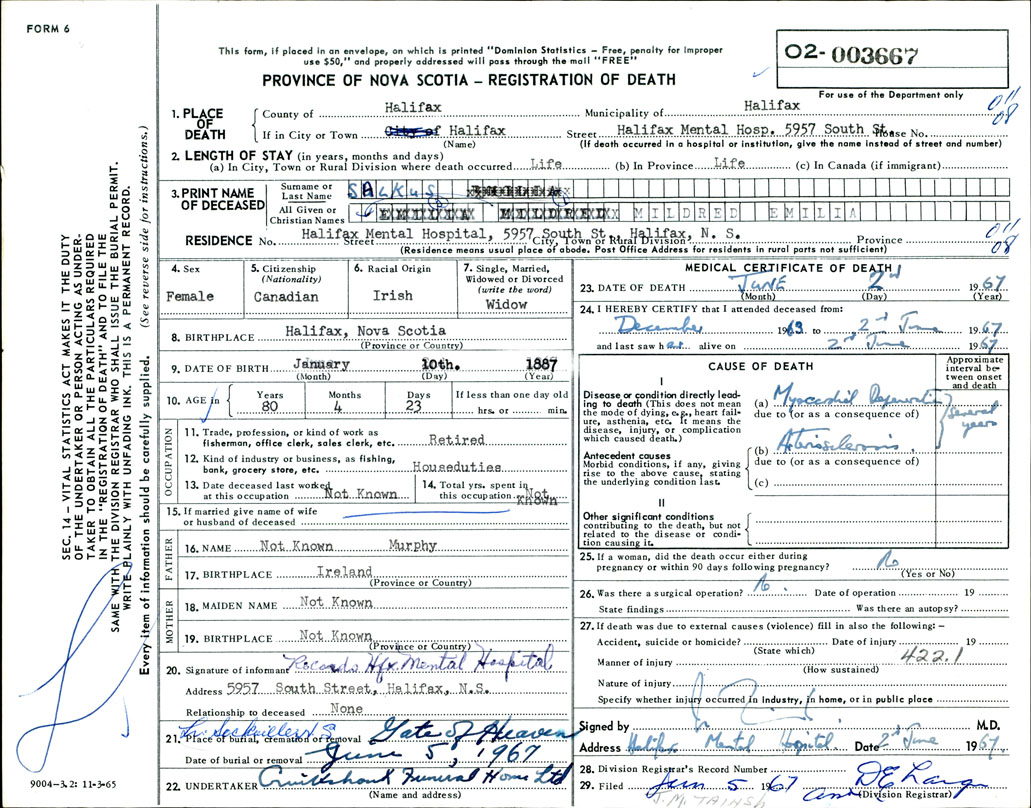 FORM 6
This form, if placed in an envelope, on which is printed "Dominion Statistics – Free, penalty for improper
use $50," and properly addressed will pass through the mail "FREE"
PROVINCE OF NOVA SCOTIA – REGISTRATION OF DEATH
O2- 003667
For use of the Department only
SEC. 14 – VITAL STATISTICS ACT MAKES IT THE DUTY
OF THE UNDERTAKER OR PERSON ACTING AS UNDER-
TAKER TO OBTAIN ALL THE PARTICULARS REQUIRED
IN THE "REGISTRATION OF DEATH" AND TO FILE THE
SAME WITH THE DIVISION REGISTRAR WHO SHALL ISSUE THE BURIAL PERMIT.
WRITE PLAINLY WITH UNFADING INK. THIS IS A PERMANENT RECORD.
Every item of information should be carefully supplied. (See reverse side for instructions.)
1. PLACE OF DEATH County of Halifax Municipality of Halifax 011 08
If in City or Town City of Halifax Street Halifax Mental Hosp. 5957 South St. House No.
(Name) (If death occurred in a hospital or institution, give the name instead of street and number)
2. LENGTH OF STAY (in years, months and days)
(a) In City, Town or Rural Division where death occurred Life (b) In Province Life (c) In Canada (if immigrant)
3. PRINT NAME OF DECEASED Surname or Last Name SALKUS
All Given or Christian Names EMILIA MILDRED MILDRED EMILIA
RESIDENCE No. Halifax Mental Hospital, 5957 South St., Halifax, N. S. 011 08
Street City, Town or Rural Division Province
(Residence means usual place of abode. Post Office Address for residents in rural parts not sufficient)
4. Sex Female
5. Citizenship (Nationality) Canadian
6. Racial Origin Irish
7. Single, Married, Widowed or Divorced (write the word) Widow
8. BIRTHPLACE Halifax, Nova Scotia
(Province or Country)
9. DATE OF BIRTH January 10th. 1887
(Month) (Day) (Year)
10. AGE in Years 80 Months 4 Days 23 If less than one day old hrs. or min.
OCCUPATION
11. Trade, profession, or kind of work as
fisherman, office clerk, sales clerk, etc. Retired
12. Kind of industry or business, as fishing,
bank, grocery store, etc. Houseduties
13. Date deceased last worked at this occupation Not Known
14. Total yrs. spent in this occupation Not Known
15. If married give name of wife
or husband of deceased
FATHER
16. NAME Not Known Murphy
17. BIRTHPLACE Ireland
(Province or Country)
MOTHER
18. MAIDEN NAME Not Known
19. BIRTHPLACE Not Known
(Province or Country)
20. Signature of informant Records Hfx Mental Hospital
Address 5957 South Street, Halifax, N.S.
Relationship to deceased None
21. Place of burial, cremation or removal Lr. Sackville N.S. Gate of Heaven
Date of burial or removal June 5, 1967
22. UNDERTAKER Cruikshank Funeral Home Ltd
(Name and address)
9004–3.2: 11-3-65
MEDICAL CERTIFICATE OF DEATH
23. DATE OF DEATH JUNE 2nd 1967
(Month) (Day) (Year)
24. I HEREBY CERTIFY that I attended deceased from:
December 1963 to 2nd June 1967
and last saw her alive on 2nd June 1967
CAUSE OF DEATH
Approximate interval between onset and death
I
Disease or condition directly leading to death (This does not mean the mode of dying, e.g., heart failure, asthenia, etc. It means the disease, injury, or complication which caused death.)
(a) Myocardial Degeneration
due to (or as a consequence of)
Several years
Antecedent causes
Morbid conditions, if any, giving rise to the above cause, stating the underlying condition last.
(b) Arteriosclerosis
due to (or as a consequence of)
(c)
II
Other significant conditions
contributing to the death, but not related to the disease or condition causing it.
25. If a woman, did the death occur either during
pregnancy or within 90 days following pregnancy? No
(Yes or No)
26. Was there a surgical operation? No. Date of operation 19
State findings Was there an autopsy?
27. If death was due to external causes (violence) fill in also the following: –
Accident, suicide or homicide? Date of injury 19
(State which)
Manner of injury 422.1
(How sustained)
Nature of injury
Specify whether injury occurred in industry, in home, or in public place
Signed by M.D.
Address Halifax Mental Hospital. Date 2nd June 1967
28. Division Registrar's Record Number
29. Filed Jun 5 1967 D E Lang
(Division Registrar)